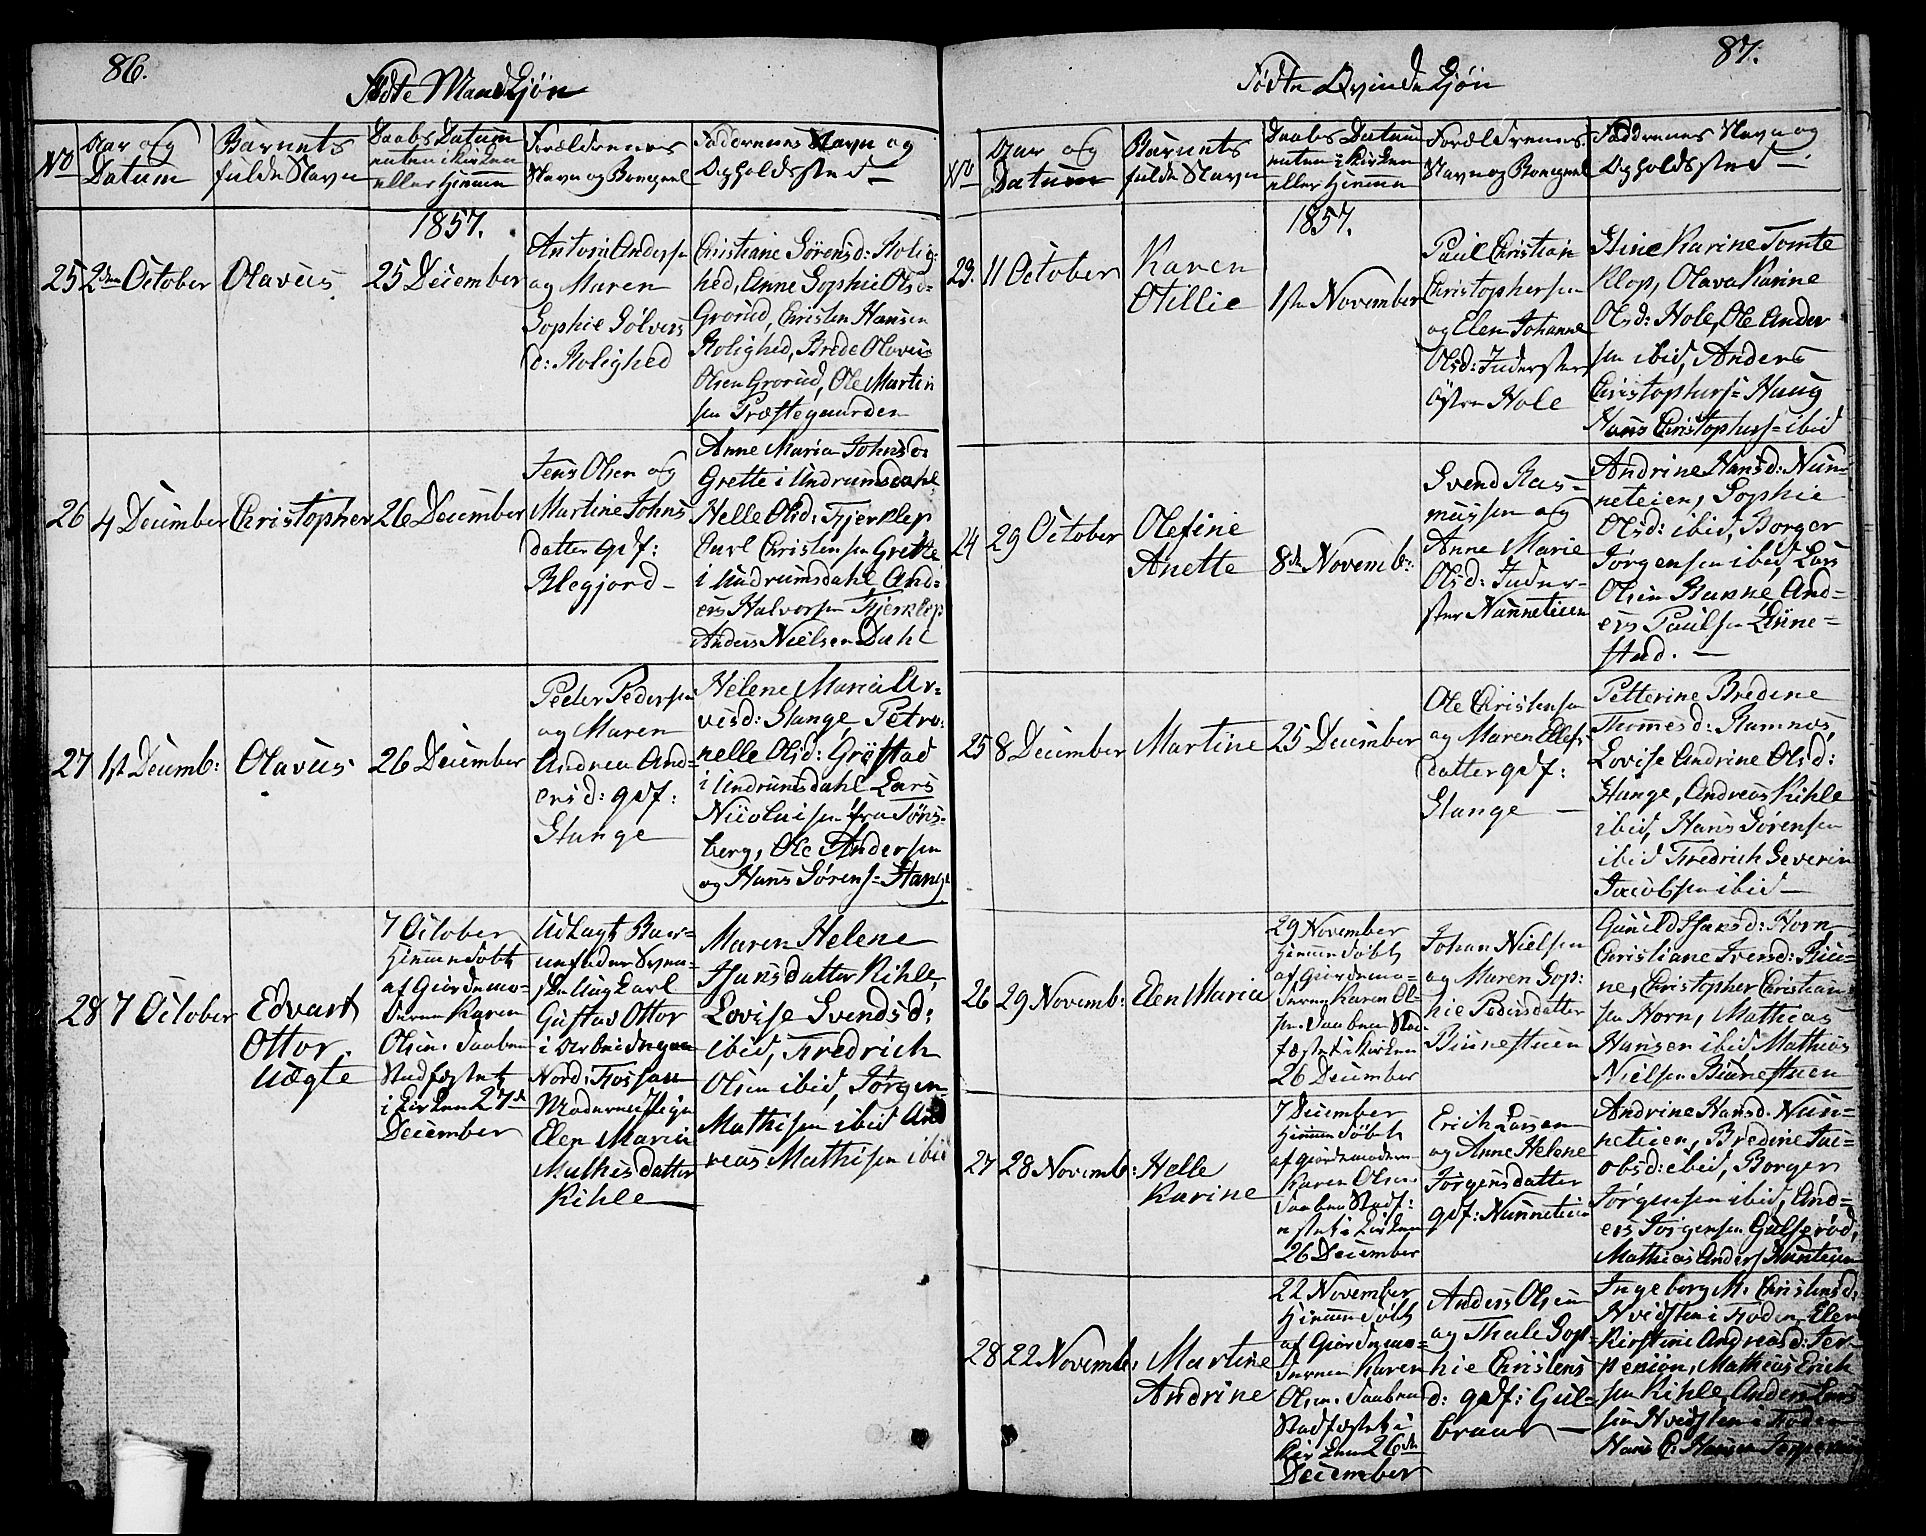 86.
Fødte Mandkjøn
No
Aar og
Datum
Barnets
fulde Navn
Daabs Datum
enten i Kirken
eller hjemme
Forældrenes
Navn og Borgerl
Faddernes Navn og
Opholdssted
1857.
25
2den October
Olavus
25 December
Anton Andersen
og Maren
Sophie Sølvers
d: Rolighed
Christiane Sørensd: Rolig-
hed, Anne Sophie Olsd-
Grorud, Christen Hansen
Rolighed, Brede Olavus
Olsen Grorud, Ole Martin
sen Præstegaarden
26
4 December
Christopher
26 December
Jens Olsen og
Martine Johns
datter gdf:
Blegjord
Anne Maria Johnsd:
Grette i Undrumsdahl
Helle Olsd: Fjerklep
Carl Christensen Grette
i Undrumsdahl And-
ers Halvorsen Fjerklep
Anders Nielsen Dahl
27
1st Decemb:
Olavus
26 December
Peder Pedersen
og Maren
Andrea And-
ersd: gdf:
Slange
Helene Maria Ar-
vesd: Slange, Petro-
nelle Olsd: Grøstad
i Undrumsdahl Lars
Nicolaisen fra Tøns-
berg, Ole Andersen
og Hans Sørens= Slange
28
7 October
Edvart
Ottor
Uægte
7 October
hjemmedøbt
af Giordemo-
deren Karen
Olsen. Daaben
Stadfæstet
i Kirken 27de
December
Udlagt Barn-
Gustav Ottor
Moderen Pigen
Elen Maria
Mathisdatter
Kihle
Maren Helene
Hansdatter Kihle,
Lovise Svendsd:
ibid, Fredrich
Olsen ibid, Jørgen
Mathisen ibid And
reas Mathisen ibid
87.
Fødte Qvindekjøn
No
Aar og
Datum
Barnets
fulde Navn
Daabs Datum
enten i Kirken
eller hjemme
Forældrenes
Navn og Borgerl
Faddrenes Navn og
Opholdssted
1857.
23.
11 October
Karen
Otillie
1ste November
Paul Christian
Christophersen
og Elen Johanne
Olsd: Inderster
Østre Hole
Stine Karine Tomte
Klop, Olava Karine
Olsd: Hole, Ole Ander
sen ibid, Anders
Christophers= Haug
Hans Christophers= ibid
24
29 October
Olefine
Anette
8de Novemb:
Svend Ras-
mussen og
Anne Marie
Olsd: Inder-
ster Nunneteien
Andrine Hansd: Nun-
neteien, Sophie
Olsd: ibid, Borger
Jørgensen ibid, Lars
Olsen Bakke And-
ers Paulsen Linne-
stad.
25
8 December
Martine
25 December
Ole Christensen
og Maren Ellefs
datter gdf:
Slange
Petterine Bredine
Thomesd: Ramnæs,
Lovise Andrine Olsd:
Slange, Andreas Kihle
ibid, Hans Sørensen
ibid Fredrich Severin
Jacobsen ibid
26
29 Novemb:
Elen Maria
29 November
hjemmedøbt
af Giordemo-
deren Karen Ol-
sen. Daaben Stad-
fæstet i Kirken
26 December
Johan Nielsen
og Maren Sop-
hie Pedersdatter
Binnestuen
Gunild Hansd: Horn
Christiane Ivensd: Bin-
ne, Christopher Christian
sen Horn, Mathias
Hansen ibid Mathias
Nielsen Binnestuen
27
28 Novemb:
Helle
Karine
7 December
hjemmedøbt
af Giordemodern
Karen Olsen.
Daaben Stadf:
estet i Kirken
26 December
Erich Larsen
og Anne Helene
Jørgensdatter
gdf: Nunneteien
Andrine Hansd: Nun-
neteien, Bredine Jac-
obsd: ibid, Borger
Jørgensen ibid, And-
ers Jørgensen Gulserød,
Mathias Anders Nunnteien
28
22 Novemb:
Martine
Andrine
22 November
hjemmedøbt
af Giordemo-
deren Karen
Olsen. Daaben
Stadfæstet i
Kirken 26de
December
Anders Olsen
og Thale Sop-
hie Christens
d: gdf: Gul-
kraar
Ingeborg M. Christensd:
Hvidsten i Foden, Elen
Kirstine Andreasd: Jer-
penion, Mathias Erich
sen Kihle, Anders Lars
sen Hvidsten i Foden
Hans C. Hansen